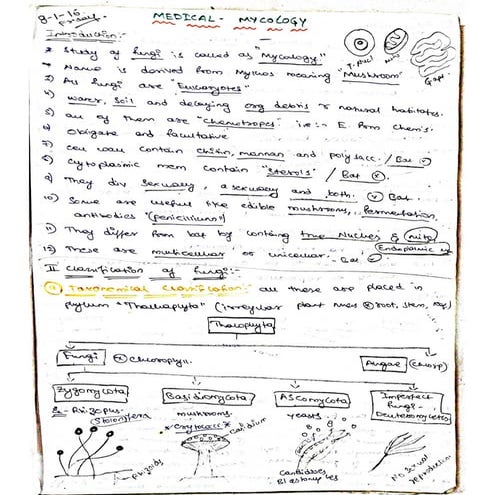 8-1-16
Friday
MEDICAL - MYCOLOGY
Introduction:-
* Study of fungi is called as "Mycology"
* Name is derived from Mykos meaning "Mushroom"
3) All fungi are "Eucaryotes"
4) Water, Soil and decaying org debris r natural habitates.
5) all of them are "Chemotropes" i.e:- E from Chem's.
6) Obligate and facultative
7) Cell wall contain Chitin, mannan and polysacc. / Bat
8) Cytoplasmic mem contain "Sterols" / Bat
9) They div Sexually, asexually and both. Bat
10) Some are useful like edible mushrooms, fermentation.
antibodies "(penicillium)"
11) They differ from bat by containg true Nucleus & mito
Endoplasmic
12) These are multicellular or unicellular. Bat
II Classification of fungi:-
Taxonomical Classification: all these are placed in
phylum "Thallophyta" (irregular plant mass root, stem,
Thalophyta
Fungi chlorophyll. Algae
Zygomycota Basidiomycota Ascomycota Imperfect
fungi - Deuteromycetes
Eg - Rhizopus mushrooms. yeasts
Stolonifera * Cryptococci *
Rhizoids
Candidoses
Blastomycetes
No sexual
reproduction